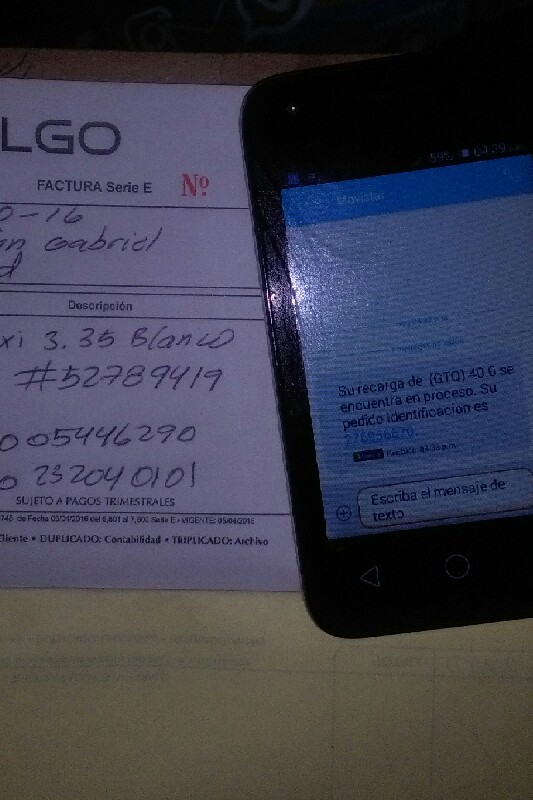 LGO
FACTURA Serie E Nº
0-16
on Gabriel
d
Descripción
xi 3.35 Blanco
#52789419
0 05446290
0 232040101
SUJETO A PAGOS TRIMESTRALES
de Fecha 05/01/2016 del 6,801 al 7,800 Serie E • VIGENTE:
liente • DUPLICADO: Contabilidad • TRIPLICADO: Archivo
59% 04:39
Movistar
Su recarga de (GTQ) 40 G se
encuentra en proceso. Su
pedido identificacion es
Recibido p.m.
Escriba el mensaje de
texto